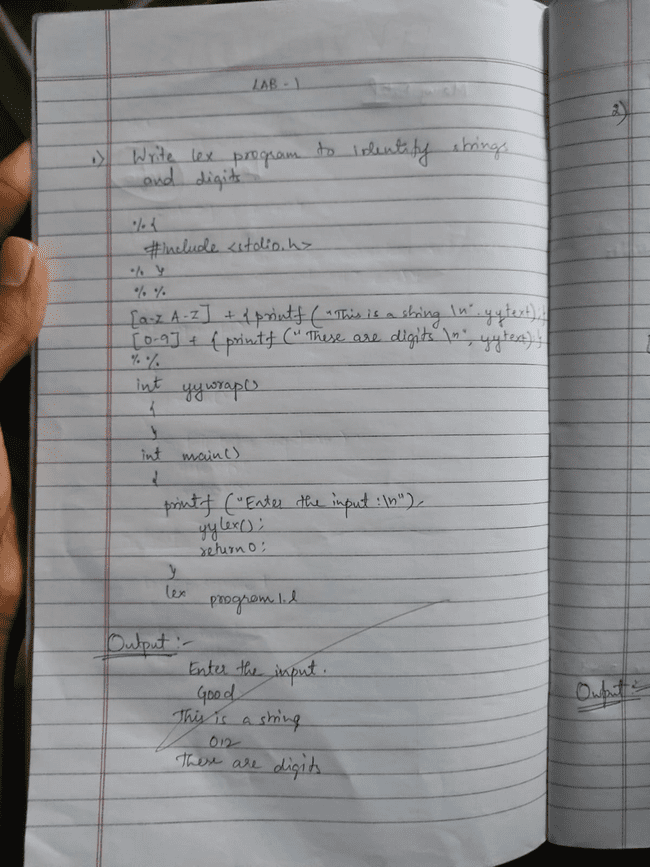 LAB - 1
1) Write lex program to identify strings
and digits
%{
#include <stdio.h>
%}
%%
[a-z A-Z] + { printf ("This is a string \n", yytext); }
[0-9] + { printf ("These are digits \n", yytext); }
%%
int yywrap()
{
}
int main()
{
printf ("Enter the input :\n");
yylex();
return 0;
}
lex program1.l
Output :-
Enter the input.
Good
This is a string
012
These are digits
2)
Output :-